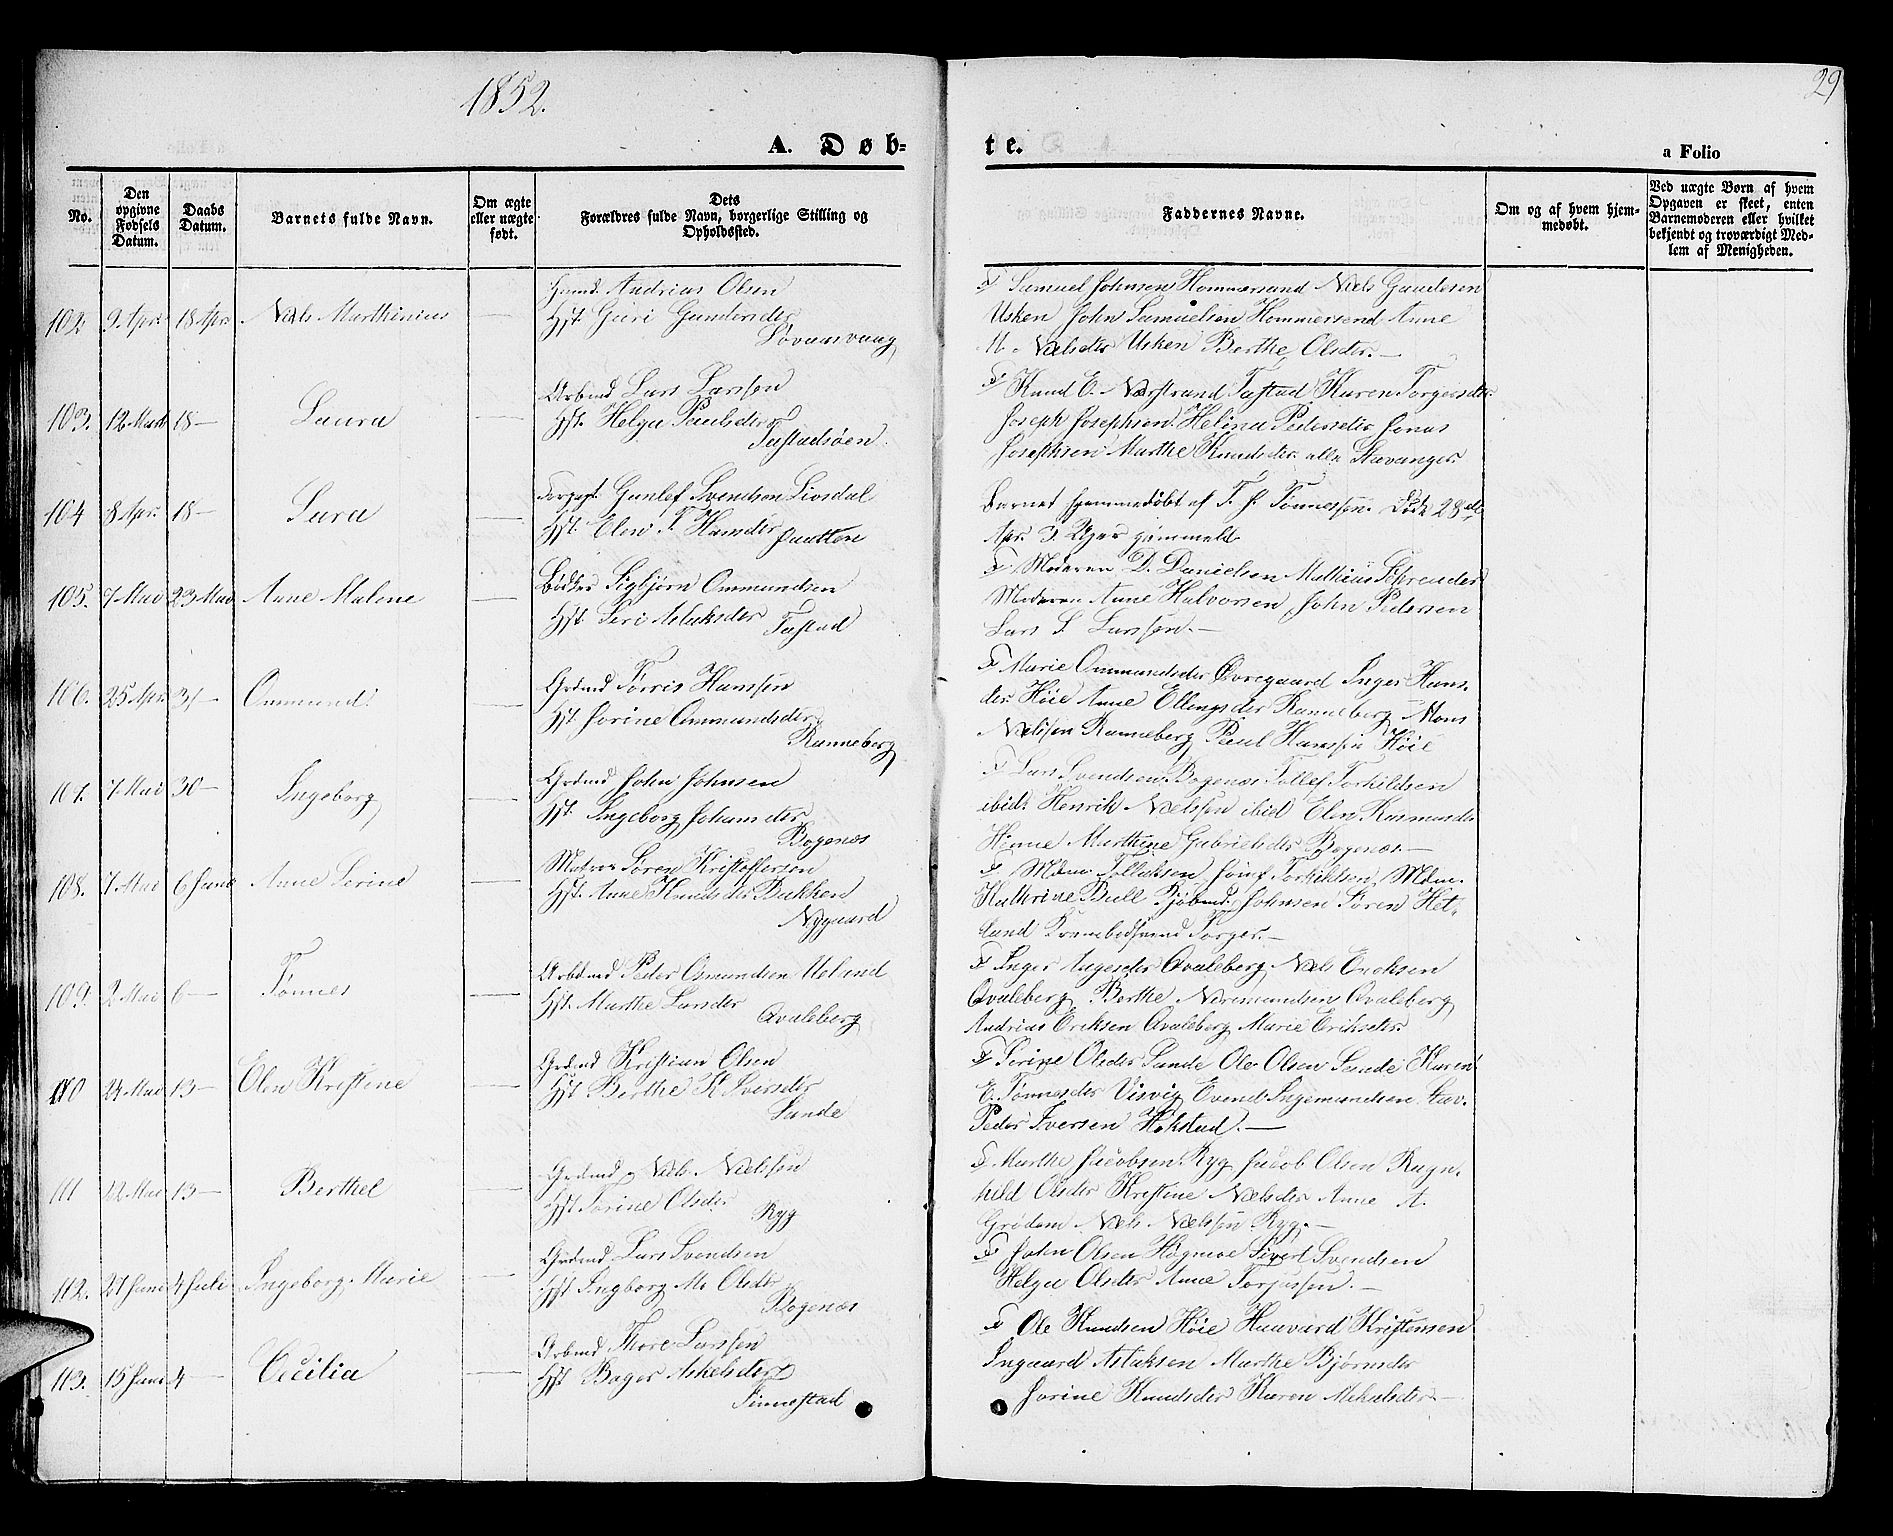 1852.
29
A. Døb-
te.
a Folio
No.
Den opgivne Fødsels Datum.
Daabs Datum.
Barnets fulde Navn.
Om ægte eller uægte født.
Dets Forældres fulde Navn, borgerlige Stilling og Opholdssted.
Faddernes Navne.
Om og af hvem hjem-
medøbt.
Ved uægte Børn af hvem
Opgaven er skeet, enten
Barnemoderen eller hvilket
bekjendt og troværdigt Med-
lem af Menigheden.
102. 9 Apr. 18 Apr. Niels Marthinius
Andrias Olsen
Hst. Guri Gundersdr
F Samuel Johnsen Hommersand Niels Gundersen
Usken John Samuelsen Hommersand Anne
Nielsdtr Usken Berthe Olsdtr.
103. 12 Marts 18 — Laura
Arbmd Lars Larssen
Hst. Helga Paulsdtr
Tastadsøen
F Knud E. Tastad Karen Torgersdtr
Joseph Josephsen Helina Pedersdtr Jonas
Josephsen Marthe Knudsdtr alle Stavanger
104 8 Apr. 18 — Sara
Gunlef Svendsen Liosdal
Hst. Elen T. Hansdtr
Barnet hjemmedøbt af T. J. Tønnessen. Død 28de
Apr. 3 Uger gammelt
105. 7 Mai 23 Mai Anne Malene
Bødker Sigbjørn Ommundsen
Hst. Siri Aslaksdtr Tastad
F Maderen D. Danielsen Mathias Schreuder
Maderen Anne Halvorsen John Pedersen
Lars S. Larssen. —
106. 25 Apr. 31 — Ommund
Grdmd Tørris Hanssen
Hst. Jorine Ommundsdtr
Ranneberg
F Marie Ommundsdtr Øvregaard Inger Hans-
dtr Høie Anne Ellingsdtr Ranneberg Mons
Nielssen Ranneberg Poul Hanssen Høie
107. 7 Mai 30 — Ingeborg
Grdmd John Johnsen
Hst. Ingeborg Johansdtr
Bogenæs
F Lars Svendsen Bogenæs Tollef Torkildsen
ibid. Henrik Nielssen ibid Elen Rasmusdtr
Hinne Marthine Gabrielsdtr Bogenæs. —
108. 7 Mai 6 Juni Anne Serine
Matros Søren Kristoffersen
Hst. Anne Knudsdtr Bakken
Nygaard
F Mdm. Tollaksen Torkildsen Mdm.
Kathrine Bull Johnsen Søren Het-
land Torger. —
109. 2 Mai 6 — Tønnes
Arbmd Peder Osmundsen Ueland
Hst. Marthe Larsdtr
Qvaleberg
F Inger Aagesdtr Qvaleberg Niels Ericksen
Qvaleberg Berthe Normundsen Qvaleberg
Andrias Eriksen Qvaleberg Marie Eriksdtr
110 24 Mai 13 — Olen Kristine
Grdmd Kristian Olsen
Hst Berthe K Iversdtr
Sande
F Serine Olsdtr Sande Ole Olsen Sande Karen
E. Tønnesdtr Visvig Evend Ingemundsen Stav.
Peder Iversen Hokstad. —
111 22 Mai 13 — Berthel
Grdmd Niels Nielssen
Hst Sorine Olsdtr
Ryg
F Marthe Jacobsen Ryg Jacob Olsen Ragn-
hild Olsdtr Kristine Nielsdtr Anne A.
Grødem Niels Nielssen Ryg. —
112. 21 Juni 4 Juli Ingeborg Marie
Grdmd Lars Svendsen
Hst Ingborg M. Olsdtr
Bogenæs
F John Olsen Høgmoe Sivert Svendsen
Helga Olsdtr Anne Torjussen. —
113. 15 Juni 4 — Cecilia
Arbmd Thore Larssen
Hst Askelsdtr
Finnestad
F Ole Knudsen Høie Haavard Kristensen
Ingaard Aslaksen Marthe Bjørnsdtr
Jorine Knudsdtr Karen Mikalsdtr. —